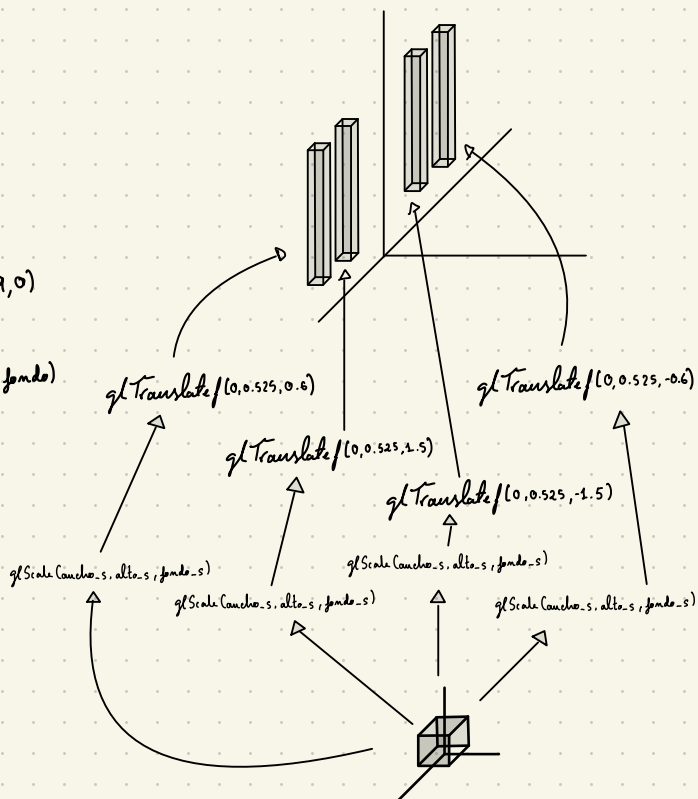 9,0)
fondo)
glTranslatef(0,0.525,0.6)
glTranslatef(0,0.525,-0.6)
glTranslatef(0,0.525,1.5)
glTranslatef(0,0.525,-1.5)
glScale(ancho_s, alto_s, fondo_s)
glScale(ancho_s, alto_s, fondo_s)
glScale(ancho_s, alto_s, fondo_s)
glScale(ancho_s, alto_s, fondo_s)